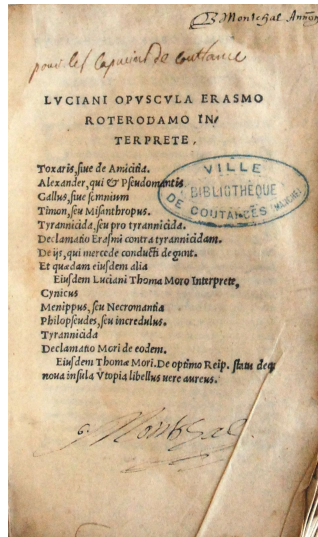 B Montchal Annon
pour les Capucins de Coutance
LVCIANI OPVSCVLA ERASMO
ROTERODAMO IN/
TERPRETE,
Toxaris, siue de Amicitia.
Alexander, qui & Pseudomantis
Gallus, siue somnium
Timon, seu Misanthropus.
Tyrannicida, seu pro tyrannicida.
Declamatio Erasmi contra tyrannicidam.
De ijs, qui mercede conducti degunt.
Et quædam eiusdem alia
Eiusdem Luciani Thoma Moro Interprete,
Cynicus
Menippus, seu Necromantia
Philopseudes, seu incredulus.
Tyrannicida
Declamatio Mori de eodem.
Eiusdem Thomæ Mori. De optimo Reip. statu deq;
noua insula Vtopia libellus uere aureus.
VILLE
BIBLIOTHÈQUE
DE COUTANCES (MANCHE)
Montchal